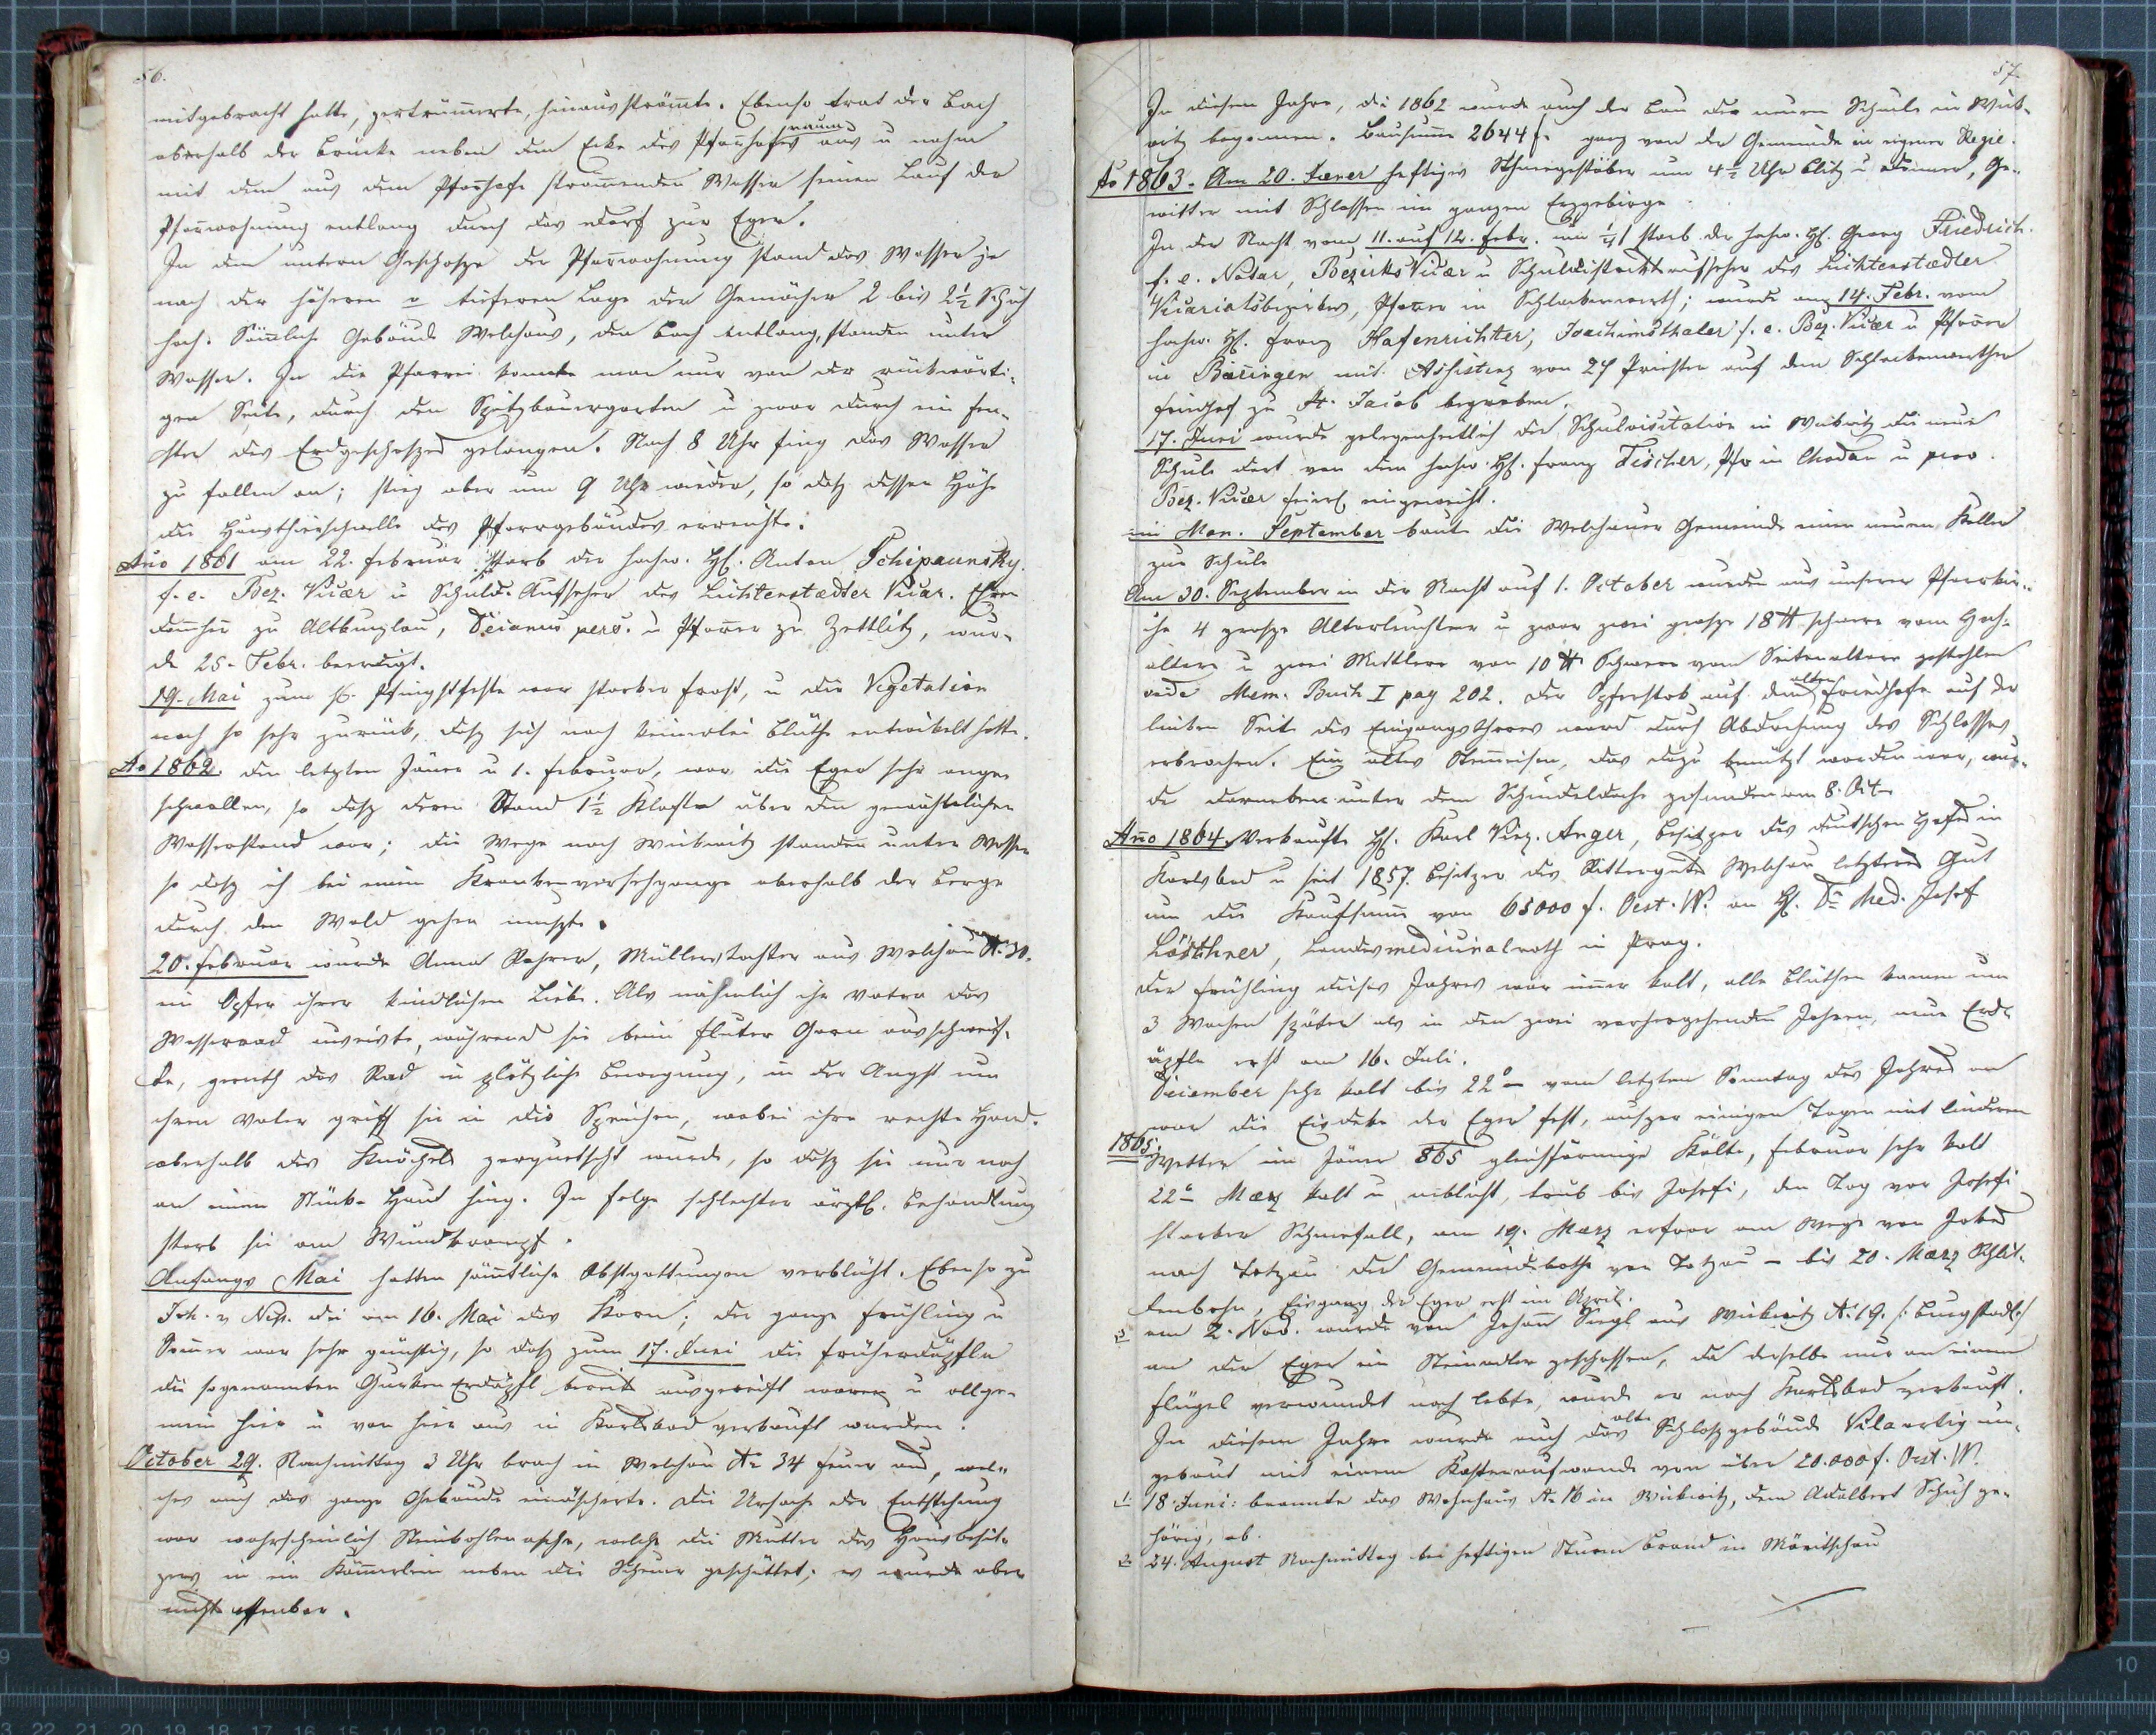 56.
mitgebracht hatte, zertrümerte, hinausströmte. Ebenso trat der Bach
oberhalb der Brücke neben dem Ecke des Pfarrhofes aus u nahm
raumes
mit dem aus dem Pfarrhofe strömenden Wasser seinen Lauf der
Pfarrwohnung entlang durch das Dorf zur Eger.
In dem untern Geschosze der Pfarrwohnung stand das Wasser je
nach der höheren u tieferen Lage der Gemächer 2 bis 2½ Schuh
hoch. Sämtliche Gebäude Welchaus, den Bach entlang, standen unter
Wasser. In die Pfarrei konnte man nur von der rückwärti-
gen Seite, durch den Spitzbauergarten u zwar durch ein Fen-
ster des Erdgeschoszes gelangen. Nach 8 Uhr fing das Wasser
zu fallen an; stieg aber um 9 Uhr wieder, so dasz dessen Höhe
die Hausthürschwelle des Pfarrgebäudes erreichte.
Ano 1861 am 22. Februar starb der hochw. H. Anton Schipaunsky
f. e. Bez. Vicær u Schuld. Aufseher des Lichtenstædter Vicar. Ehren
domherr zu Altbunzlau, Decanus pers. u Pfarrer zu Zettlitz, wur-
de 25. Febr. beerdigt.
19. Mai zum h. Pfingstfeste war starker Frost, u die Vegetation
noch so sehr zurück, dasz sich noch keinerlei Blüthe entwickelt hatte.
Ao 1862. den letzten Jäner u 1. Februar, war die Eger sehr ange-
schwollen, so dasz deren Stand 1½ Klafter über den gewöhnlichen
Wasserstand war; die Wege nach Wickwitz standen unter Wasser
so dasz ich bei einem Krankenversehgange oberhalb der Berge
durch den Wald gehen muszte.
20. Februar wurde Anna Rohrer, Müllerstochter aus Welchau N. 30.
ein Opfer ihrer kindlichen Liebe. Als nähmlich ihr Vater das
Wasserrad eneiste, während sie beim Fluter Garn ausschweif-
te, gerieth das Rad in plötzliche Bewegung, in der Angst um
ihren Vater griff sie in die Speichen, wobei ihre rechte Hand
oberhalb des Knöchels zerquetscht wurde, so dasz sie nur noch
an einem Stücke Haut hing. In Folge schlechter ärztl. Behandlung
starb sie am Wundkrampf.
Anfangs Mai hatten sämtliche Obstgattungen verblüht. Ebenso zu
Joh. v Nep. die am 16. Mai das Korn; der ganze Frühling u
Somer war sehr günstig, so dasz zum 17. Juni die Früherdäpfln
die sogenannten Gurken Erdäpfl bereits ausgereift waren u allge-
mein hier u von hier aus in Karlsbad verkauft wurden.
October 29. Nachmittag 3 Uhr brach in Welchau N. 34 Feuer aus, wel-
ches auch das ganze Gebäude einäscherte. Die Ursache der Entstehung
war wahrscheinlich Steinkohlenasche, welche die Mutter des Hausbesit-
zers in ein Kämerlein neben die Scheuer geschüttet; es wurde aber
nicht offenbar.
57
In diesem Jahre, die 1862 wurde auch der Bau der neuen Schule in Wick-
witz begonnen. Bausume 2644 f. ganz von der Gemeinde in eigener Regie.
Ao 1863. Am 20. Jæner heftiges Schneegestöber um 4½ Uhr Blitz u Donner, Ge-
witter mit Schlossen im ganzen Erzgebirge.
In der Nacht vom 11. auf 12. Febr. um ½1 starb der hochw. H. Georg Friedrich.
f. e. Notar, Bezirks Vicær u Schuldistrictsaufseher des Lichtenstædter
Vicariatsbezirkes, Pfarrer in Schlackenwerth; wurde am 14. Febr. vom
hochw. H. Franz Hafenrichter, Joachimsthaler f. e. Bez. Vicær u Pfarrer
in Bæringen mit Assistenz von 24 Priester auf dem Schlackenwerther
Friedhof zu St. Jacob begraben.
17. Juni wurde gelegenheitlich der Schulvisitation in Wickwitz die neue
Schule dort von dem hochw. H. Franz Fischer, Pfr in Chodau u prov.
Bez. Vicær feierl eingeweiht.
im Mon. September baute die Welchauer Gemeinde einen neuen Keller
zur Schule
Am 30. September in der Nacht auf 1. October wurden aus unserer Pfarrkir-
che 4 grosze Altarleuchter u zwar zwei grosze 18 ℔ schwere vom Hoch-
altare u zwei Mittlere von 10 ℔ Schwere vom Seitenaltare gestohlen
vide Mem. Buch I pag 202. Der Opferstock auf dem alten Friedhofe auf der
linken Seite des Eingangsthores ward durch Abdrehung des Schlosses
erbrochen. Ein altes Stemeisen, das dazu benützt worden war, wur-
de darneben unter dem Schindeldache gefunden am 8. Oct.
Ano 1864. Verkaufte H. Karl Vinz. Anger, Besitzer des deutschen Hofes in
Karlsbad u seit 1857. Besitzer des Rittergutes Welchau letzteres Gut
um die Kaufsume von 65000 f. Oest. W. an H. Dr Med. Josef
Löschner, Landesmedicinalrath in Prag.
Der Frühling dieses Jahres war imer kalt, alle Blüthen kamen um
3 Wochen später als in den zwei vorhergehenden Jahren, neue Erd-
äpfln erst am 16. Juli.
December sehr kalt bis 22° – vom letzten Sonntag des Jahres an
war die Eisdecke der Eger fest, auszer einigen Tagen mit linderem
1865 Wetter im Jäner 865 gleichförmige Kälte, Februar sehr kalt
22° – Mærz kalt u neblicht, trüb bis Josefi, den Tag vor Josefi
starker Schneefall, am 19. Mærz erfror am Wege von Jokes
nach Totzau der Gemeindbothe von Totzau – bis 20. Mærz Schlit-
tenbahn, Eisgang der Eger erst im April.
3 am 2. Nov. wurde von Johan Siegl aus Wickwitz N. 19. /: Burgstadl :/
an der Eger ein Steinadler geschossen, da derselbe nur an einem
Flügel verwundet noch lebte, wurde er nach Karlsbad verkauft.
In diesem Jahre wurde auch das alte Schloszgebäude Vilaartig um-
gebaut mit einem Kostenaufwande von über 20.000 f. Oest. W.
1 18. Juni: brannte das Wohnhaus N. 16 in Wickwitz, dem Adalbert Schuh ge-
hörig, ab.
2 24. August Nachmittag bei heftigen Sturm Brand in Möritschau